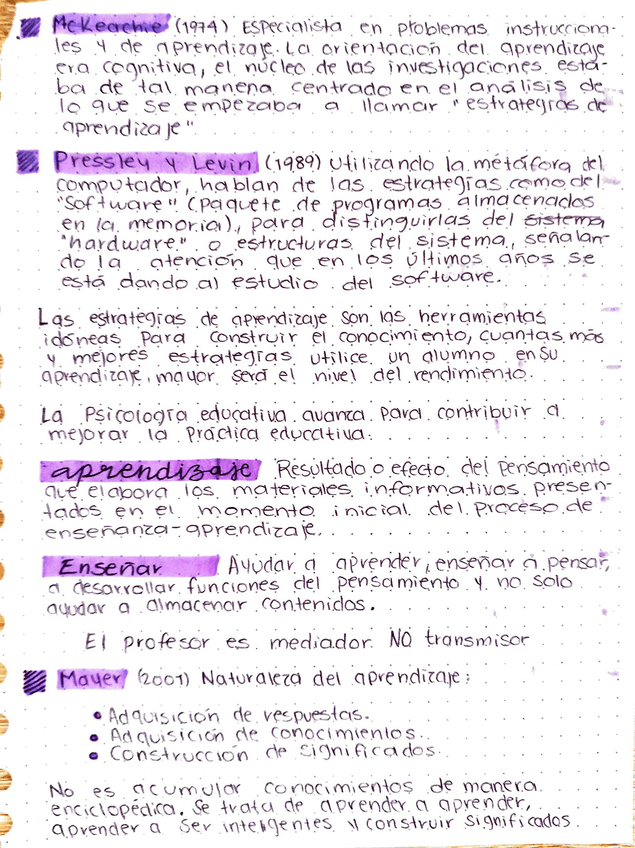 McKeachie (1974) Especialista en problemas instrucciona-
les y de aprendizaje. La orientación del aprendizaje
era cognitiva, el núcleo de las investigaciones esta-
ba de tal manera centrado en el análisis de
lo que se empezaba a llamar "estrategias de
aprendizaje"
Pressley y Levin (1989) Utilizando la metáfora del
computador, hablan de las estrategias como del
"Software" (paquete de programas almacenados
en la memoria), para distinguirlas del sistema
"hardware" o estructuras del sistema, señalan-
do la atención que en los últimos años se
está dando al estudio del software.
Las estrategias de aprendizaje son las herramientas
idóneas para construir el conocimiento, cuantas más
y mejores estrategias utilice un alumno en su
aprendizaje, mayor será el nivel del rendimiento.
La Psicología educativa avanza para contribuir a
mejorar la práctica educativa.
aprendizaje Resultado o efecto del pensamiento
que elabora los materiales informativos presen-
tados en el momento inicial del proceso de
enseñanza-aprendizaje.
Enseñar Ayudar a aprender, enseñar a pensar,
a desarrollar funciones del pensamiento y no solo
ayudar a almacenar contenidos.
El profesor es mediador NO transmisor
Mayer (2001) Naturaleza del aprendizaje:
• Adquisición de respuestas.
• Adquisición de conocimientos.
• Construcción de significados.
No es acumular conocimientos de manera
enciclopédica. Se trata de aprender a aprender,
aprender a ser inteligentes y construir significados